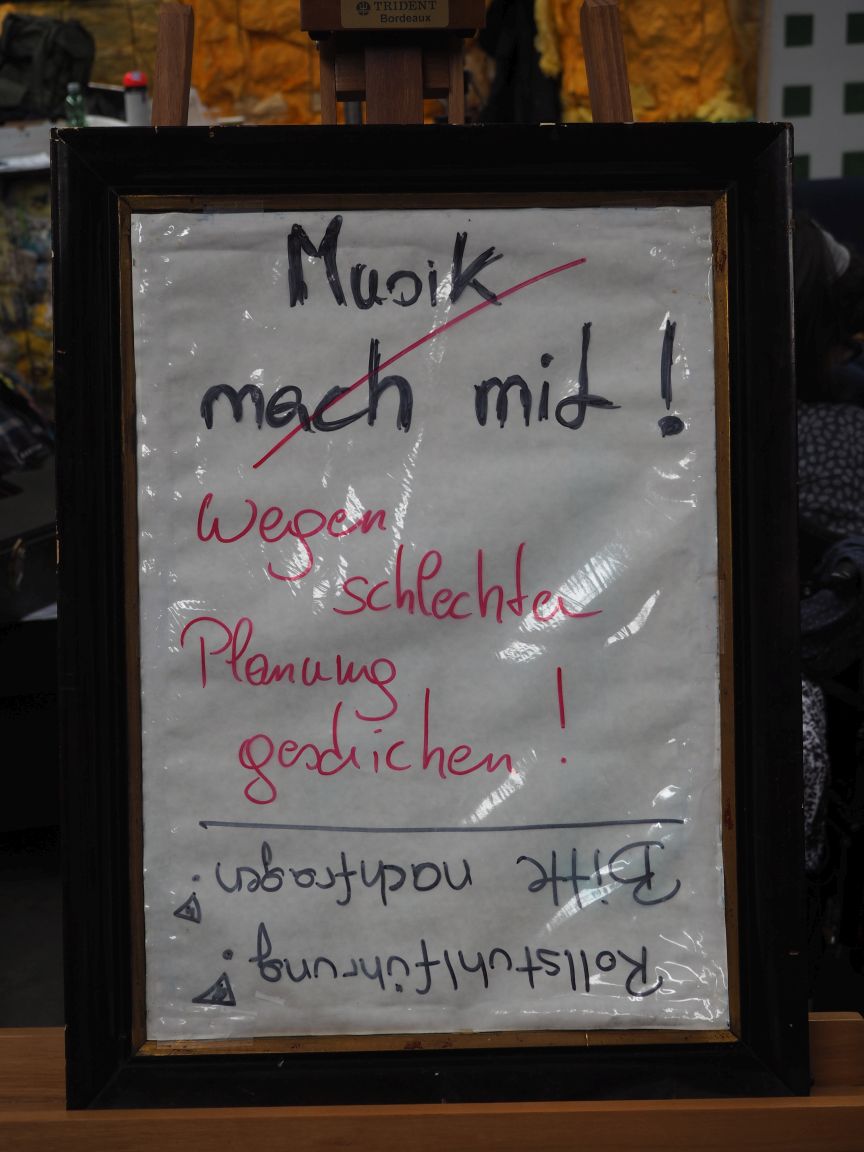 TRIDENT
Bordeaux
Musik
mach mit!
Wegen
schlechter
Planung
gestrichen!
Rollstuhlführung!
Bitte nachfragen!